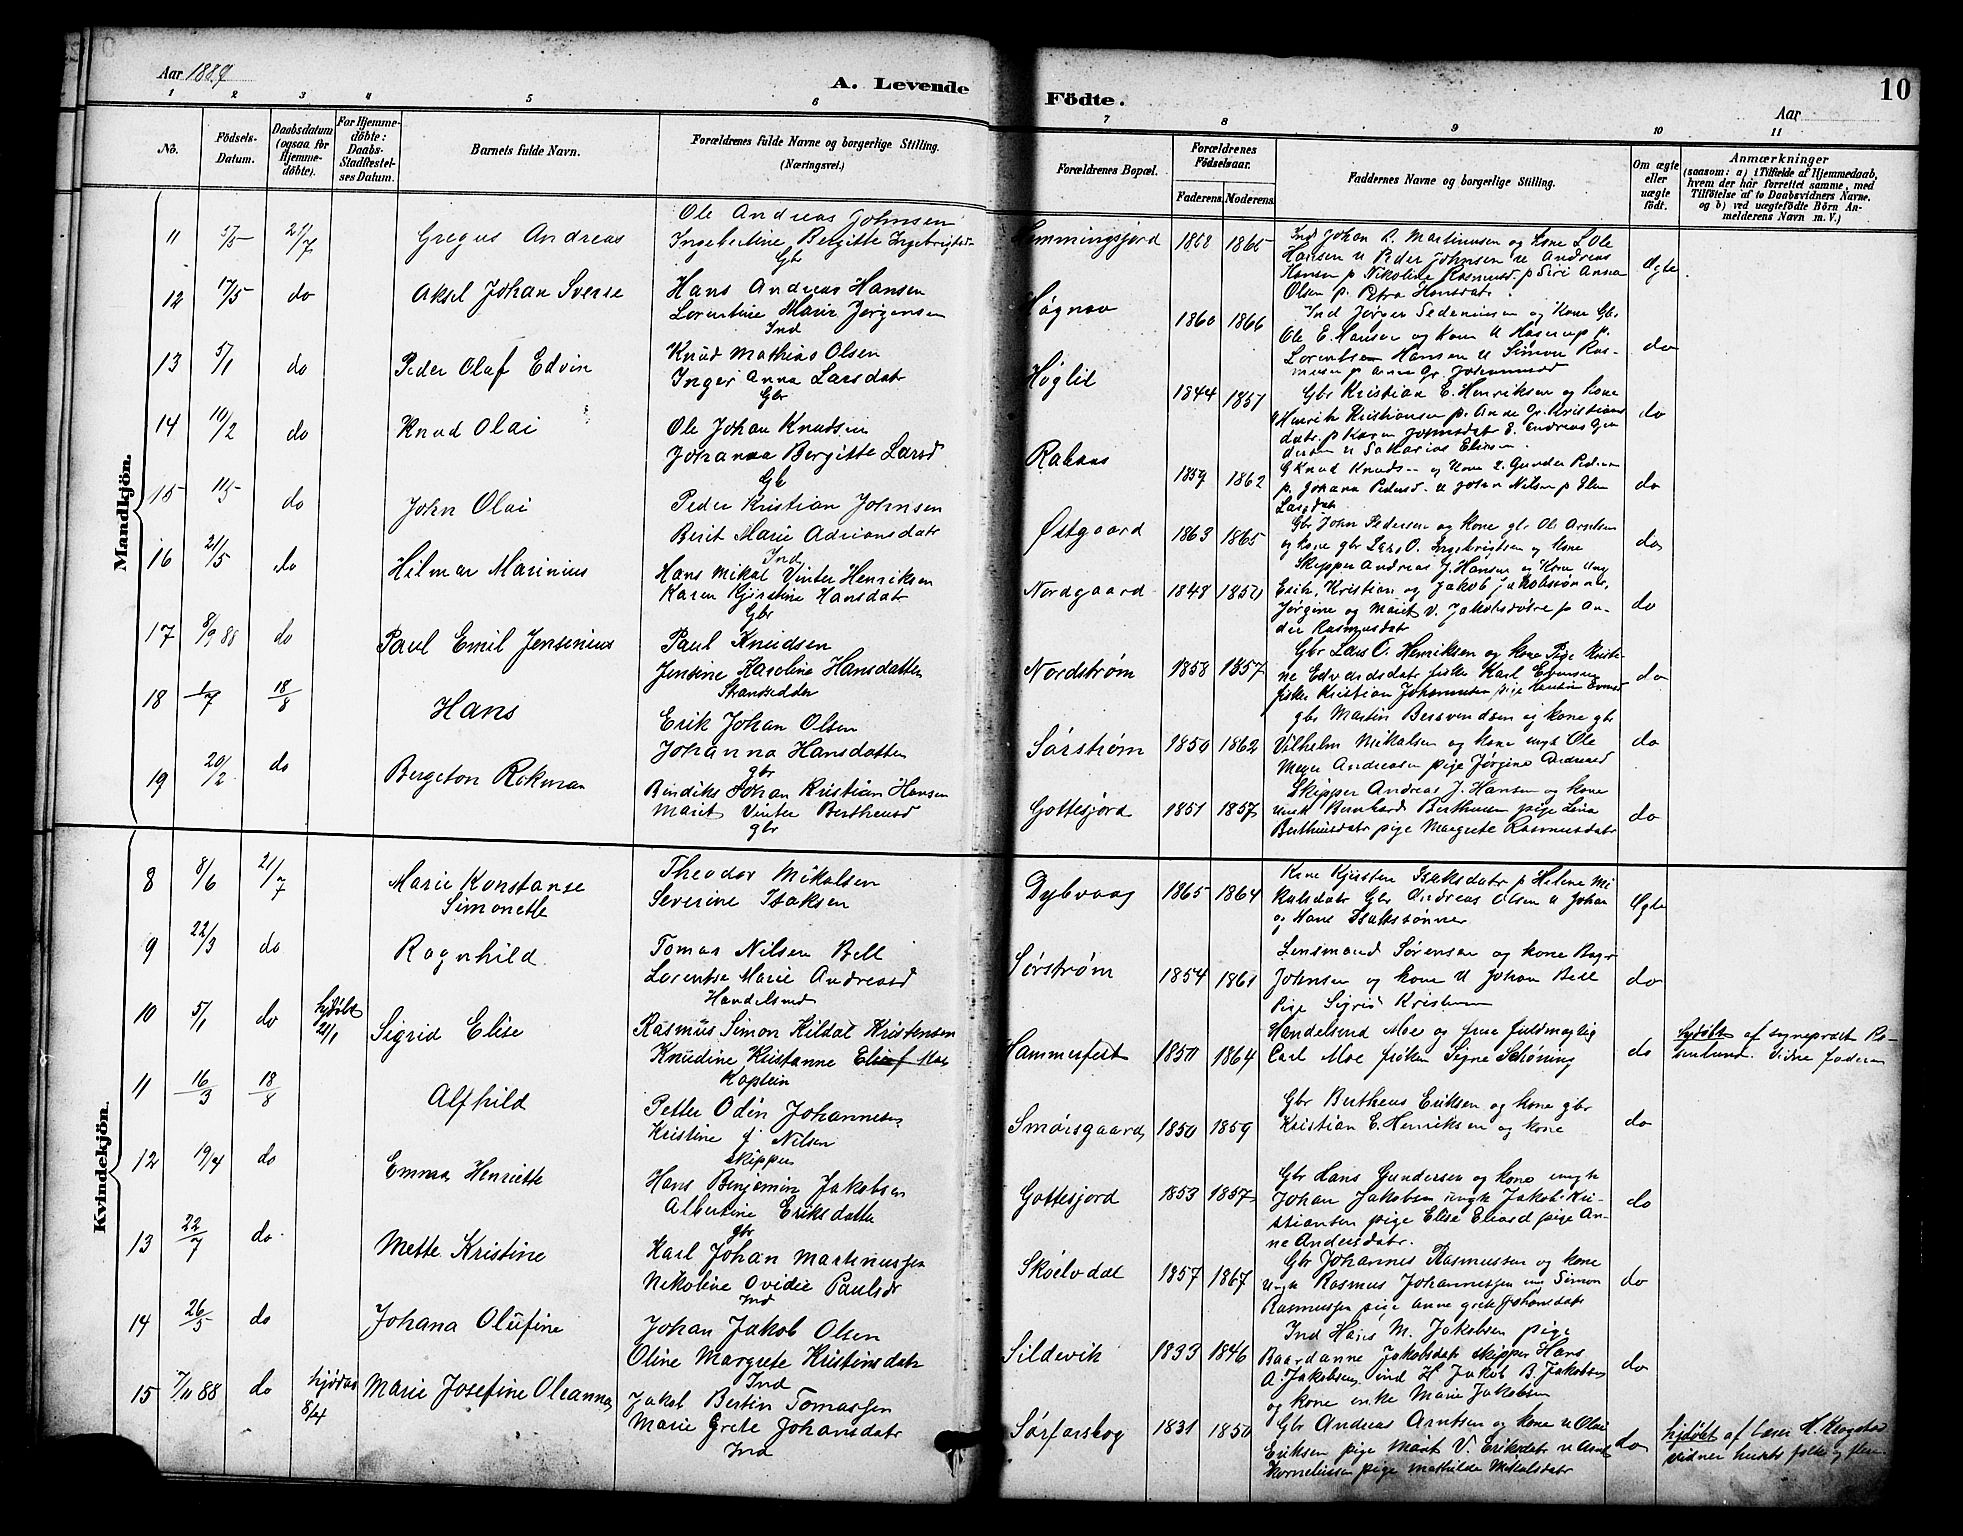 Aar 1889
A. Levende Födte.
Aar
10
1 2 3 4 5 6 7 8 9 10 11
No.
Födsels-Datum.
Daabsdatum (ogsaa for Hjemmedöbte).
For Hjemmedöbte: Daabs-Stadfæstelses Datum.
Barnets fulde Navn.
Forældrenes fulde Navne og borgerlige Stilling. (Næringsvei.)
Forældrenes Bopæl.
Forældrenes Födselsaar.
Faderens. Moderens.
Faddernes Navne og borgerlige Stilling.
Om ægte eller uægte födt.
Anmærkninger (saasom: a) i Tilfælde af Hjemmedaab, hvem der har forrettet samme, med Tilföielse af to Daabsvidners Navne. og b) ved uægtefödte Börn Anmelderens Navn m. V.)
Mandkjön.
11 5/5 21/7 Gregus Andreas
Ole Andreas Johnsen
Ingebertine Bergitte Ingebrigtsd
Gbr
Hemmingsjord 1862 1865
Ind Johan R. Martinusen og kone L Ole
Hansen U Peder Johnsen U Andreas
Hansen p Nikoline Rasmusd. p Siri Anna
Olsen p. Petra Hansdatr
Ægte
12 17/5 do Aksel Johan Sverre
Hans Andreas Hansen
Lorentine Marie Jørgensen
Ind
Høgnav 1860 1866
Ind Jørger Sedeniusen og kone Gbr
Ole E. Hansen og kone U Haserup p.
Lorentsen Hansen U Simon Ras-
musen p Anne Gr. Johannesd
do
13 5/1 do Peder Olaf Edvin
Knud Mathias Olsen
Inger Anna Larsdatr
Gbr
Høglit 1844 1851
Gbr Kristian E. Henriksen og kone
U Henrik Kristiansen p. Anne Gr. Kristians
datr. p Karen Johnsdatr E. Andreas Gun
dersen U Sakarias Eliesen
do
14 10/2 do Knud Olai
Ole Johan Knudsen
Johanna Bergitte Larsd
Gb
Rabaas 1859 1862
G Knud Knudsen og kone L. Gunder Pedersen
p. Johana Pedersd. U Johan Nilsen p Elen
Larsdatr
do
15 11/5 do John Olai
Peder Kristian Johnsen
Berit Marie Adriansdatr
Ind
Østgaard 1863 1865
Gbr John Pedersen og kone gbr Ole Arntsen
og kone gbr Lars O. Ingebrigtsen og kone
Skipper Andreas J. Hansen og kone Ung
do
16 21/5 do Hilmar Marinius
Hans Mikal Vinter Henriksen
Karen Kjerstine Hansdatr
Gbr
Nordgaard 1848 1850
Erik, Kristian og Jakob Jakobssønner,
Jørgine og Marit V. Jakobsdøtre p An-
dre Rasmusdatr
do
17 8/9 88 do Paul Emil Jensenius
Paul Knudsen
Jensine Karoline Hansdatter
Strandsidder
Nordstrøm 1858 1857
Gbr Lars O. Henriksen og kone Pige Kristi-
ne Edvardsdatr fisker Karl Evensen
fisker Kristian Johannesen pige Hansine Evensd
do
18 1/7 18/8 Hans
Erik Johan Olsen
Johanna Hansdatter
gbr
Sørstrøm 1850 1862
gbr Martin Bersvendsen og kone gbr
Vilhelm Mikalsen og kone ungk Ole
Meyer Andreasen pige Jørgine Andreasd
do
19 20/2 do Bergeton Rokman
Bendiks Johan Kristian Hansen
Marit Vinter Bertheusd
gbr
Gottesjord 1851 1857
Skipper Andreas J. Hansen og kone
ungk Bernhard Bertheusen pige Lina
Bertheusdatr pige Margrete Rasmusdatr
do
Kvindekjön.
8 8/6 21/7 Marie Konstanse
Simonette
Theodor Mikalsen
Severine Isaksen
Dybvaag 1865 1864
Kone Kjersten Isaksdatr p Helene Mi
kalsdatr Gbr Andreas Olsen U Johan
og Hans Isakssønner
Ægte
9 22/3 do Ragnhild
Tomas Nilsen Bell
Lorentse Marie Andreasd
Handelsmd
Sørstrøm 1854 1861
Lensmand Sørensen og kone Bager
Johnsen og kone U Johan Bell
Pige Sigrid Kristensen
do
10 5/1 do hjdøbt 21/1 Sigrid Elise
Rasmus Simon Kildal Kristensen
Knudine Kristanne Moe
Kaptein
Hammerfest 1850 1864
Handelsmd Moe og frue fuldmægtig
Carl Moe frøken Signe Schøning
do
hjdøbt af sognepræst Ro-
senlund. Vidne faderen
11 16/3 18/8 Alfhild
Petter Odin Johannesen
Kristine J. Nilsen
Skipper
Smørsgaard 1850 1859
Gbr Bertheus Eriksen og kone gbr
Kristian E. Henriksen og kone
do
12 19/4 do Emma Henriette
Hans Benjamin Jakobsen
Albertine Eriksdatter
Gbr
Gottesjord 1853 1857
Gbr Hans Gundersen og kone ungk
Johan Jakobsen ungk Jakob Kri-
stiansen pige Elise Eliasd pige An-
ne Andersdatr.
do
13 22/7 do. Mette Kristine
Karl Johan Martinussen
Nikoline Ovidie Paulsdr
Ind
Skoelvdal 1857 1867
Gbr Johannes Rasmussen og kone
Ungk Rasmus Johannessen um Simon
Rasmussen pige Anne Grete Johansdatr
do
14 26/5 do Johana Olufine
Johan Jakob Olsen
Oline Margrete Kristinsdatr
Ind
Sildevik 1833 1846
Ind Hans M. Jakobsen pige
Baardanne Jakobsdatr skipper Hans
A. Jakobsen, ind H Jakob B. Jakobsen
og kone enke Marie Jakobsen
do
15 7/11 88 do hjdøbt 8/4 Marie Josefine Oleanna
Jakob Bertin Tomassen
Marie Grete Johansdatr
Ind
Sørfarsbog 1831 1850
Gbr Andreas Arntsen og kone U Olai
Eriksen pige Marit V. Eriksdatr U Arnt
Kornelussen pige Mathilde Mikalsdatr
do
hjdøbt af Lærer H. Krogstad
Vidner husets folk og flere